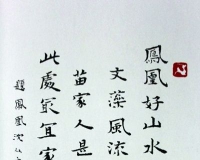 鳳凰好山水
文藻風流
苗家人是
此處最宜家
題鳳凰沈